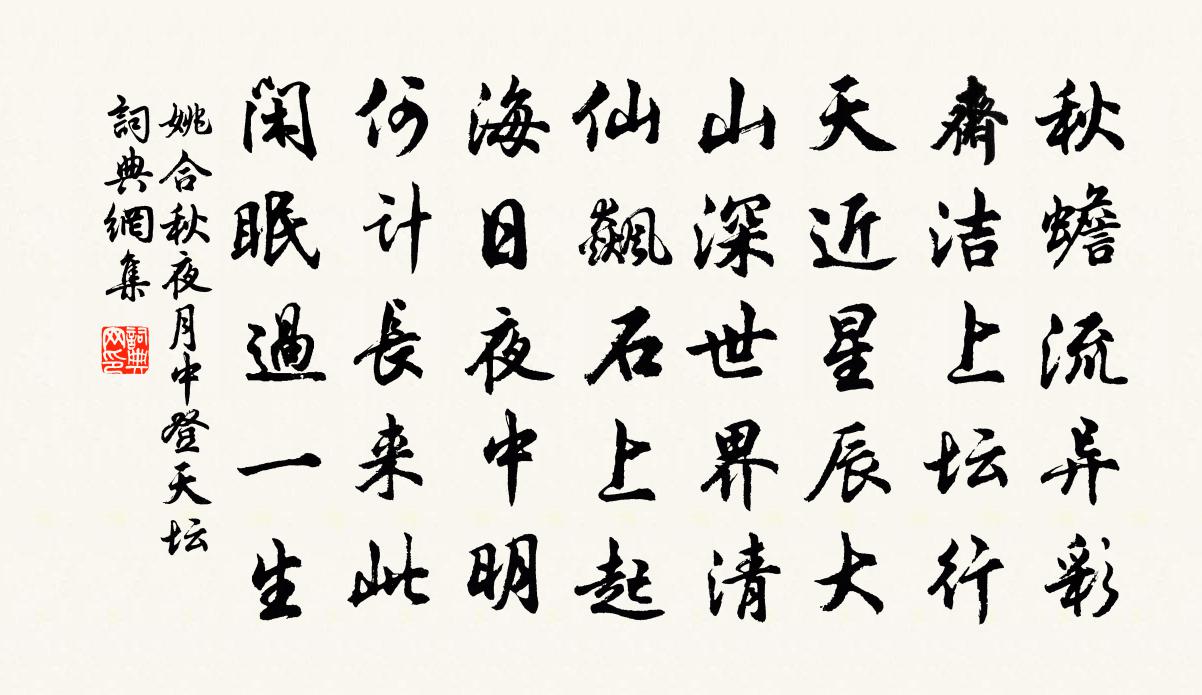 秋蟾流异彩
齋洁上坛行
天近星辰大
山深世界清
仙飇石上起
海日夜中明
何计長来此
闲眠過一生
姚合秋夜月中登天坛
詞典網集
詞典网印